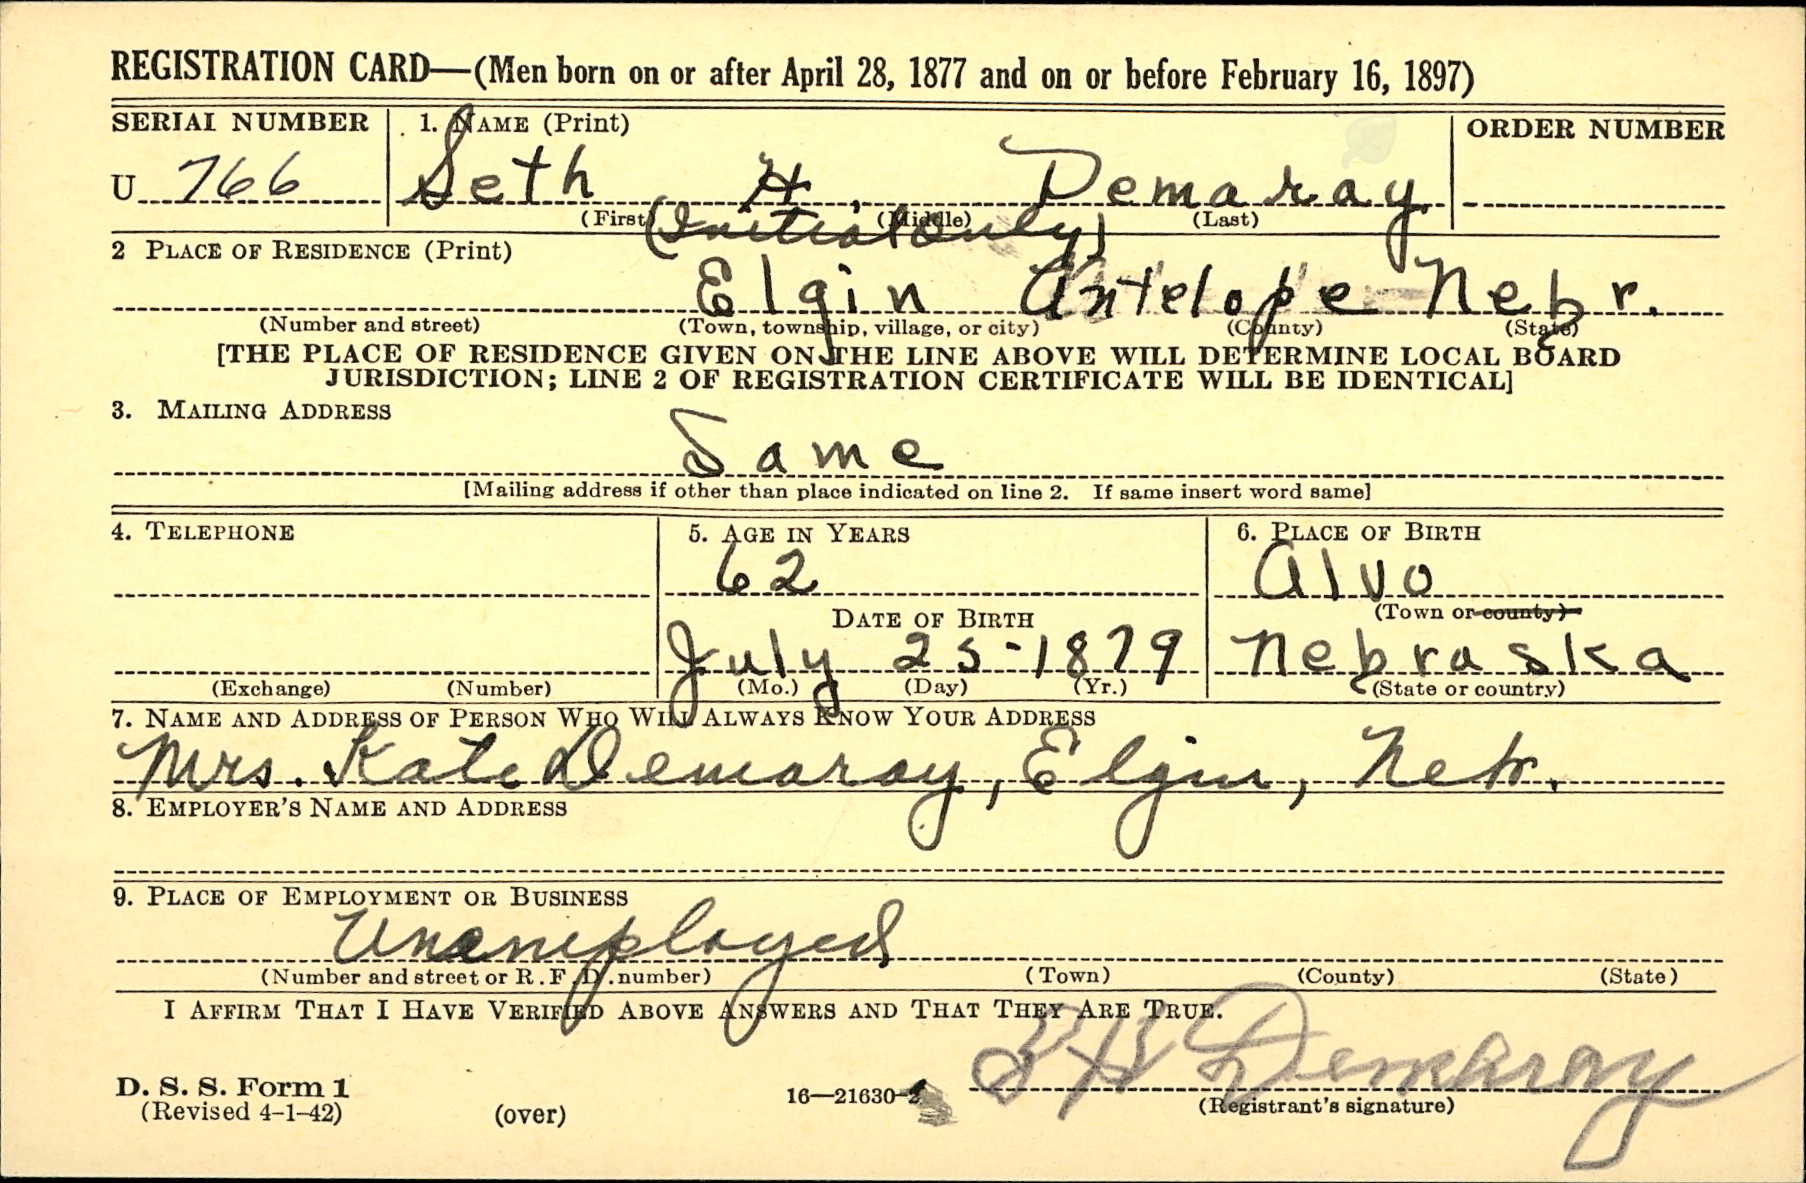 REGISTRATION CARD—(Men born on or after April 28, 1877 and on or before February 16, 1897)
SERIAL NUMBER 1. NAME (Print) ORDER NUMBER
U 766 Seth H. Demaray
(First) (Middle) (Last)
(Initial Only)
2 PLACE OF RESIDENCE (Print)
Elgin Antelope Nebr.
(Number and street) (Town, township, village, or city) (County) (State)
[THE PLACE OF RESIDENCE GIVEN ON THE LINE ABOVE WILL DETERMINE LOCAL BOARD
JURISDICTION; LINE 2 OF REGISTRATION CERTIFICATE WILL BE IDENTICAL]
3. MAILING ADDRESS
Same
[Mailing address if other than place indicated on line 2. If same insert word same]
4. TELEPHONE 5. AGE IN YEARS 6. PLACE OF BIRTH
62 Alvo
DATE OF BIRTH (Town or county)
July 25-1879 Nebraska
(Exchange) (Number) (Mo.) (Day) (Yr.) (State or country)
7. NAME AND ADDRESS OF PERSON WHO WILL ALWAYS KNOW YOUR ADDRESS
Mrs. Kate Demaray, Elgin, Nebr.
8. EMPLOYER'S NAME AND ADDRESS
9. PLACE OF EMPLOYMENT OR BUSINESS
Unemployed
(Number and street or R.F.D. number) (Town) (County) (State)
I AFFIRM THAT I HAVE VERIFIED ABOVE ANSWERS AND THAT THEY ARE TRUE.
S H Demaray
D. S. S. Form 1 16—21630-2 (Registrant's signature)
(Revised 4-1-42) (over)